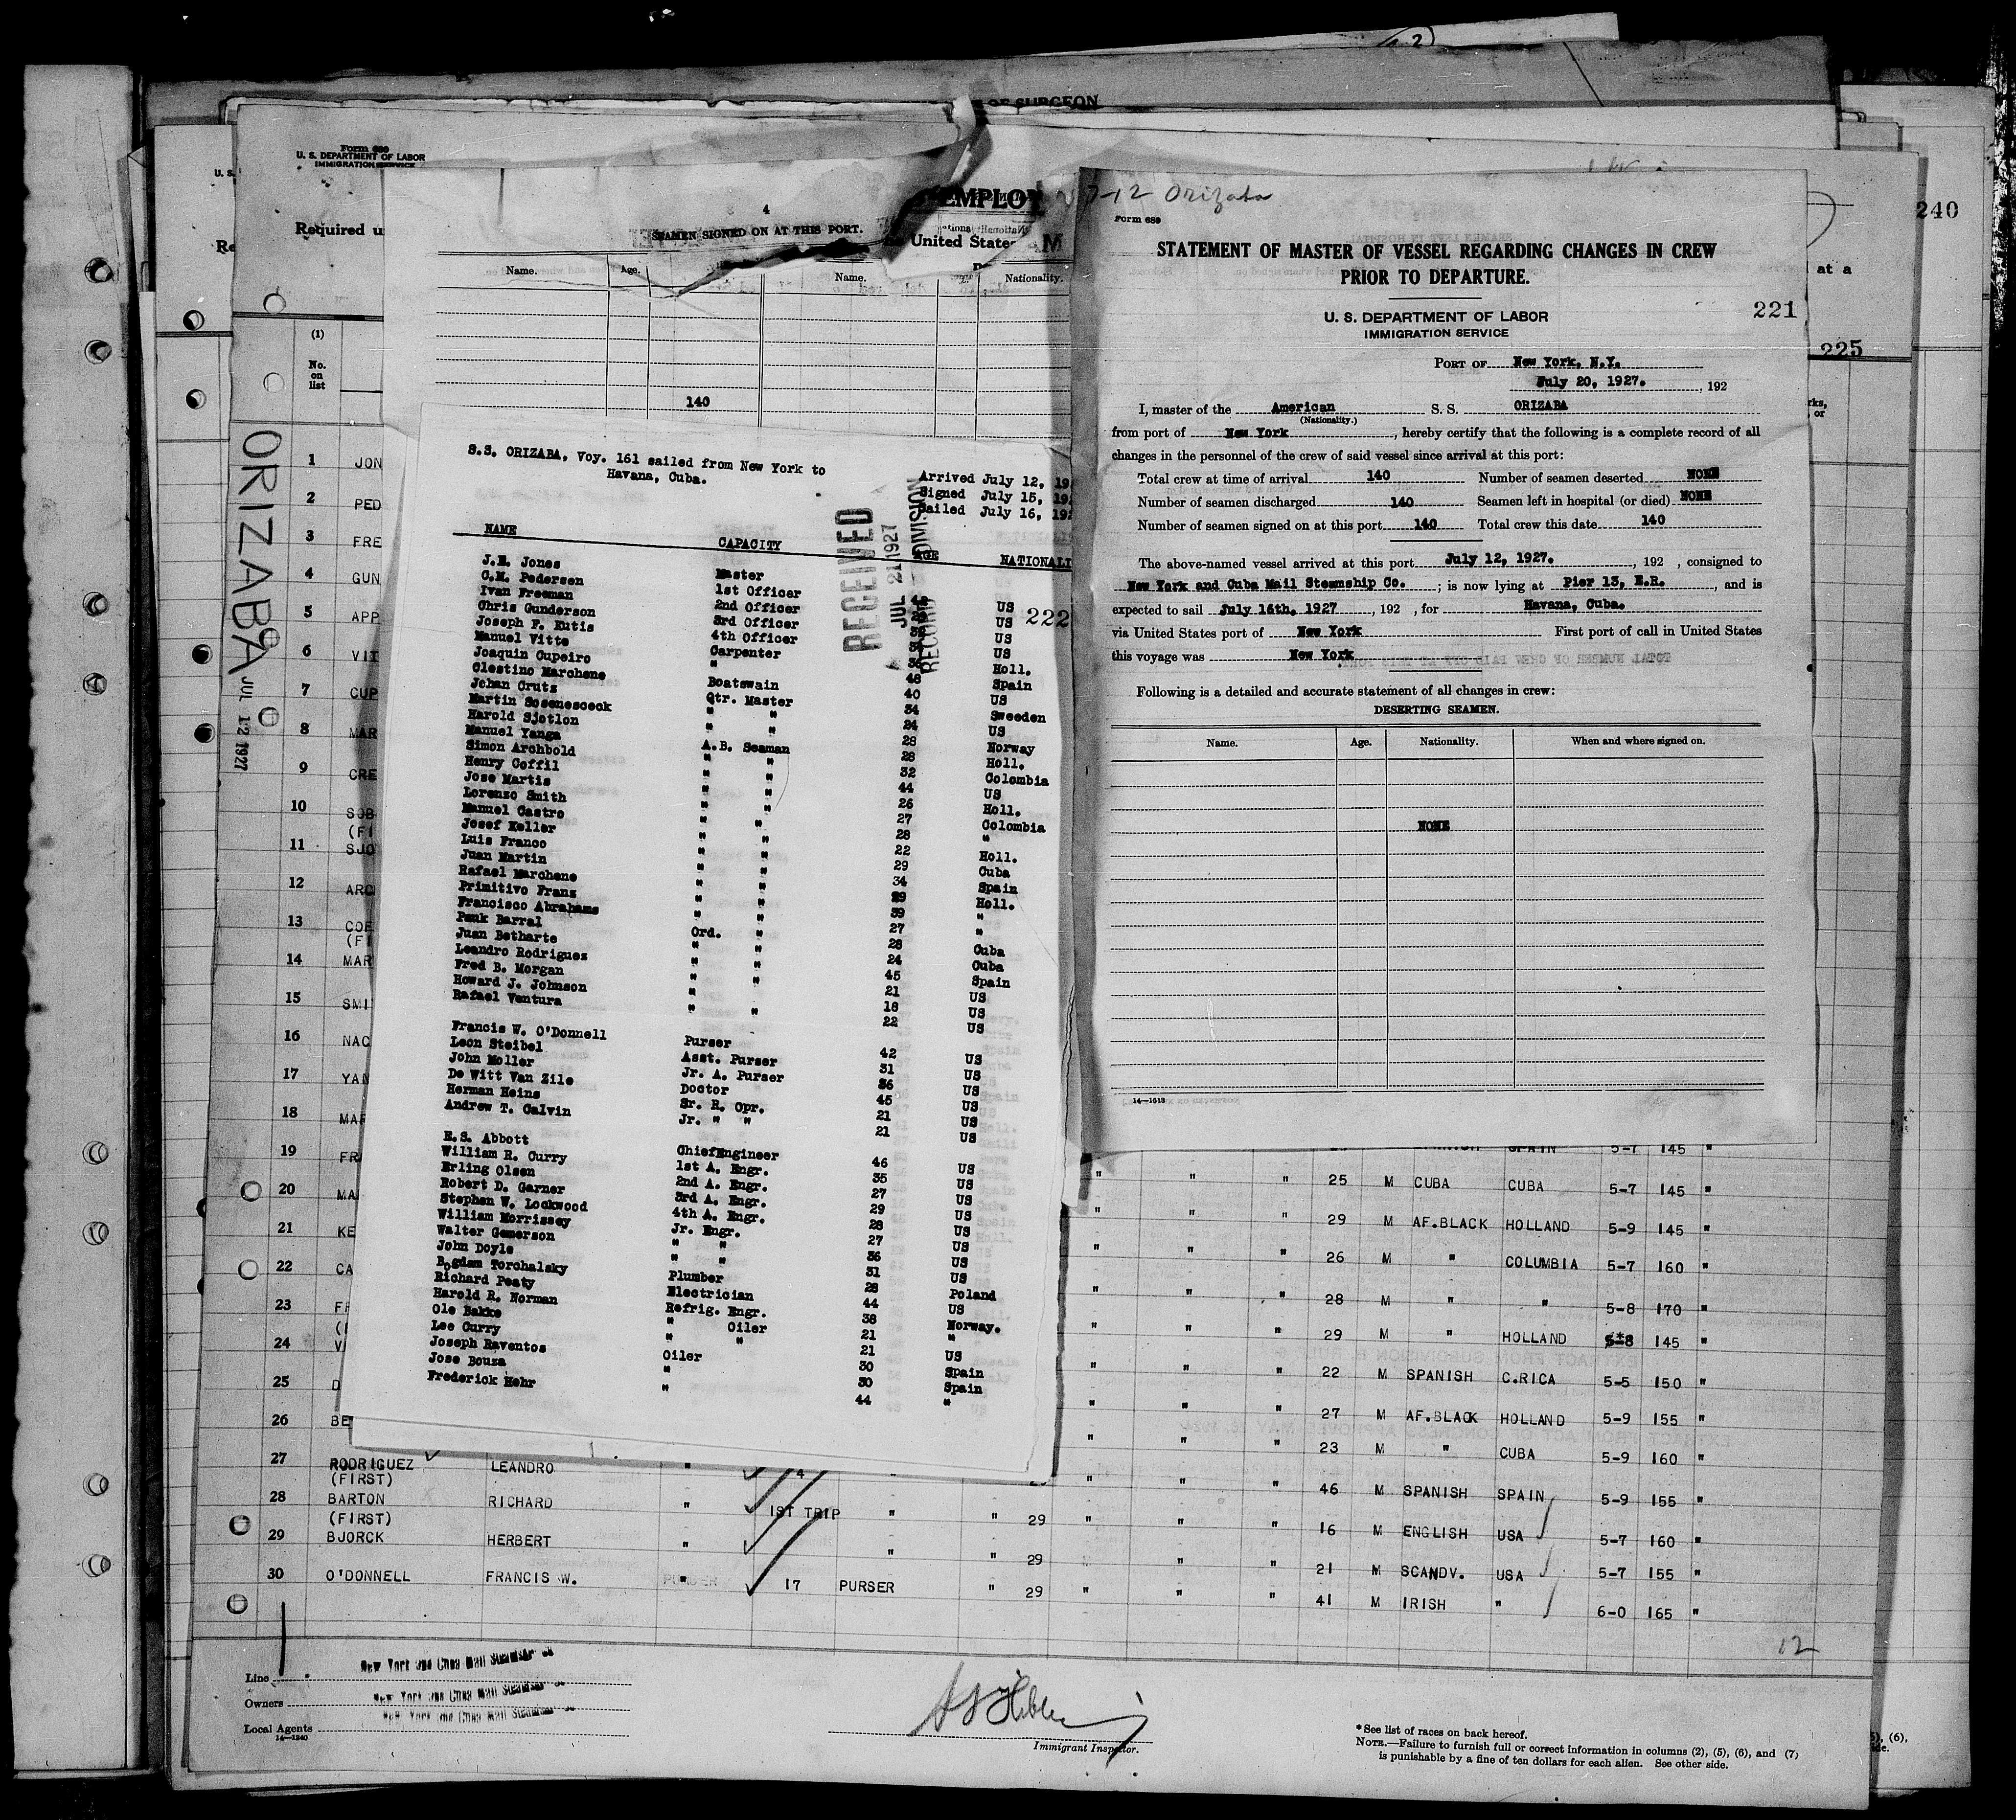 OF SURGEON
Form 689
U. S. DEPARTMENT OF LABOR
IMMIGRATION SERVICE
Required u
EMPLOY
United States
4
SEAMEN SIGNED ON AT THIS PORT.
Name. Age. Name. Nationality.
140
240
at a
225
7-12 Orizaba
Form 689
STATEMENT OF MASTER OF VESSEL REGARDING CHANGES IN CREW
PRIOR TO DEPARTURE.
U. S. DEPARTMENT OF LABOR
IMMIGRATION SERVICE
221
PORT OF New York, N.Y.
July 20, 1927. , 192
I, master of the American S. S. ORIZABA
(Nationality.)
from port of New York , hereby certify that the following is a complete record of all
changes in the personnel of the crew of said vessel since arrival at this port:
Total crew at time of arrival 140 Number of seamen deserted NONE
Number of seamen discharged 140 Seamen left in hospital (or died) NONE
Number of seamen signed on at this port 140 Total crew this date 140
The above-named vessel arrived at this port July 12, 1927. , 192 , consigned to
New York and Cuba Mail Steamship Co. ; is now lying at Pier 13, E.R. , and is
expected to sail July 16th, 1927 , 192 , for Havana, Cuba.
via United States port of New York First port of call in United States
this voyage was New York
Following is a detailed and accurate statement of all changes in crew:
DESERTING SEAMEN.
Name. Age. Nationality. When and where signed on.
NONE
14—1613
S.S. ORIZABA, Voy. 161 sailed from New York to
Havana, Cuba.
Arrived July 12, 19
Signed July 15, 19
Sailed July 16, 192
RECEIVED
JUL 21 1927
RECORD DIVISION
222
NAME CAPACITY AGE NATIONALI
J.E. Jones Master
C.M. Pedersen 1st Officer US
Ivan Freeman 2nd Officer US
Chris Gunderson 3rd Officer US
Joseph F. Kutis 4th Officer US
Manuel Vitte Carpenter Holl.
Joaquin Cupeiro " 48 Spain
Clestino Marchene Boatswain 40 US
Johan Crutz Qtr. Master 34 Sweden
Martin Sosenesceck " " 24 US
Harold Sjotlon " " 28 Norway
Manuel Yanga A.B. Seaman 28 Holl.
Simon Archbold " " 32 Colombia
Henry Coffil " " 44 US
Jose Martis " " 26 Holl.
Lorenzo Smith " " 27 Colombia
Manuel Castro " " 28 "
Josef Keller " " 22 Holl.
Luis Franco " " 29 Cuba
Juan Martin " " 34 Spain
Rafael Marchene " " 29 Holl.
Primitivo Frans " " 39 "
Francisco Abrahams " " 27 "
Pauk Barral Ord. " 28 Cuba
Juan Betharte " " 24 Cuba
Leandro Rodriguez " " 45 Spain
Fred B. Morgan " 21 US
Howard J. Johnson " 18 US
Rafael Ventura " " 22 US
Francis W. O'Donnell Purser 42 US
Leon Steibel Asst. Purser 31 US
John Moller Jr. A. Purser 36 US
De Witt Van Zile Doctor 45 US
Herman Heins Sr. R. Opr. 21 US
Andrew T. Galvin Jr. " " 21 US
R.S. Abbott ChiefEngineer 46 US
William R. Curry 1st A. Engr. 35 US
Erling Olsen 2nd A. Engr. 27 US
Robert D. Garner 3rd A. Engr. 29 US
Stephen W. Lockwood 4th A. Engr. 28 US
William Morrissey Jr. Engr. 27 US
Walter Gemerson " " 36 US
John Doyle " " 31 US
Bogdam Torchalsky Plumber 28 Poland
Richard Peaty Electrician 44 US
Harold R. Norman Refrig. Engr. 38 Norway.
Ole Bakke " Oiler 21 "
Lee Curry " " 21 US
Joseph Raventos Oiler 30 Spain
Jose Bouza " 30 Spain
Frederick Hehr " 44 "
ORIZABA
JUL 12 1927
(1)
No.
on
list
1 JON
2 PED
3 FRE
4 GUN
5 APP
6 VIT
7 CUP
8 MAR
9 CRE
10 SOB
(FI
11 SJO
12 ARC
13 COF
(FI
14 MAR
15 SMI
16 NAC
17 YAN
18 MAR
19 FRA SPAIN 5-7 145 "
20 MA " " " 25 M CUBA CUBA 5-7 145 "
21 KE " " " 29 M AF.BLACK HOLLAND 5-9 145 "
22 CA " " " 26 M " COLUMBIA 5-7 160 "
23 FR " " " 28 M " " 5-8 170 "
24 V " " " 29 M " HOLLAND 5*8 145 "
25 D " " 22 M SPANISH C.RICA 5-5 150 "
26 BE " " " 27 M AF.BLACK HOLLAND 5-9 155 "
" " " 23 M " CUBA 5-9 160 "
27 RODRIGUEZ LEANDRO " 4 " " " " 46 M SPANISH SPAIN 5-9 155 "
(FIRST)
28 BARTON RICHARD " 1ST TRIP " " 29 " " " 16 M ENGLISH USA 5-7 160 "
(FIRST)
29 BJORCK HERBERT " " " 29 " " 21 M SCANDV. USA 5-7 155 "
30 O'DONNELL FRANCIS W. " 17 PURSER " 29 " " " 41 M IRISH " 6-0 165 "
12
Line New York and Cuba Mail Steamship Co
Owners New York and Cuba Mail Steamship Co
Local Agents New York and Cuba Mail Steamship Co
14—1240
Immigrant Inspector.
*See list of races on back hereof.
NOTE.—Failure to furnish full or correct information in columns (2), (5), (6), and (7)
is punishable by a fine of ten dollars for each alien. See other side.